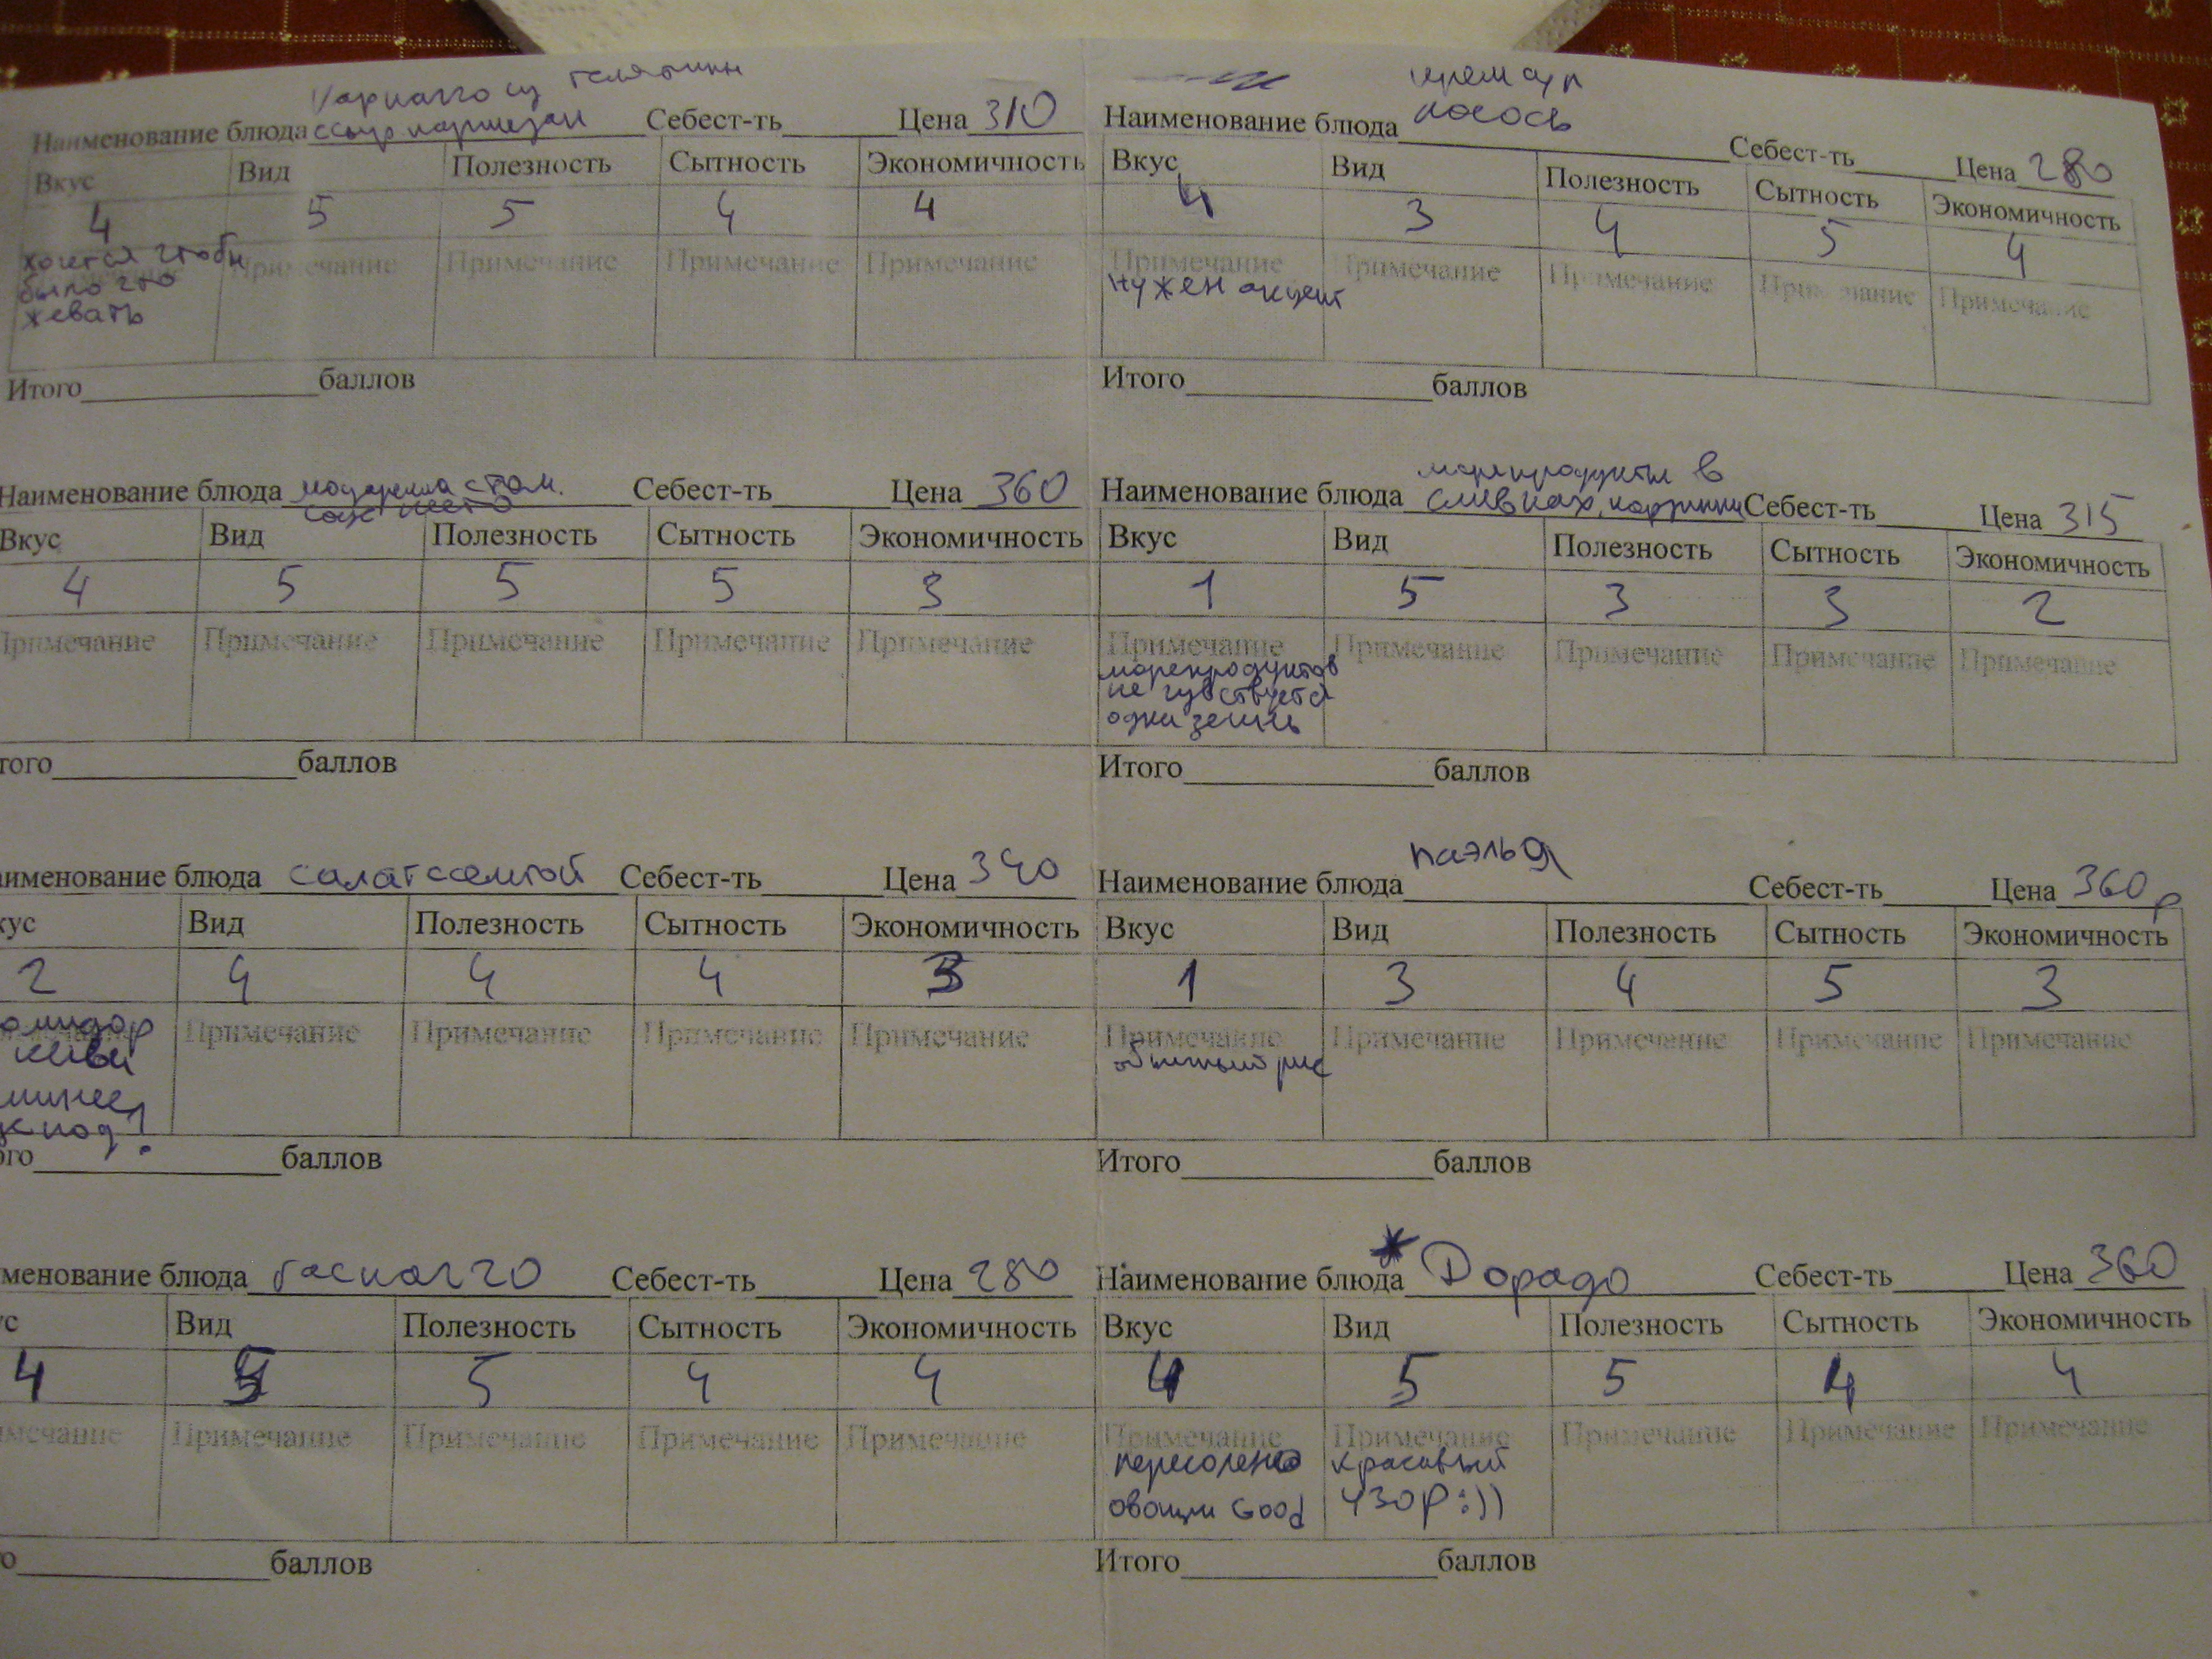 Карпаччо из телятины
Наименование блюда с сыр пармезан Себест-ть Цена 310
Вкус Вид Полезность Сытность Экономичность
4 5 5 4 4
Примечание Примечание Примечание Примечание
хочется чтобы
было что
жевать
Итого баллов
Наименование блюда моцарелла с том. Себест-ть Цена 360
соус песто
Вкус Вид Полезность Сытность Экономичность
4 5 5 5 3
Примечание Примечание Примечание Примечание Примечание
того баллов
аименование блюда салат с семгой Себест-ть Цена 340
кус Вид Полезность Сытность Экономичность
2 4 4 4 3
Примечание Примечание Примечание Примечание
омидор
киви
ого баллов
менование блюда гаспаччо Себест-ть Цена 280
с Вид Полезность Сытность Экономичность
4 5 5 4 4
мечание Примечание Примечание Примечание Примечание
о баллов
крем суп
Наименование блюда лосось Себест-ть Цена 280
Вкус Вид Полезность Сытность Экономичность
4 3 4 5 4
Примечание Примечание Примечание Примечание Примечание
нужен акцент
Итого баллов
морепродукты в
Наименование блюда сливках, Себест-ть Цена 315
Вкус Вид Полезность Сытность Экономичность
1 5 3 3 2
Примечание Примечание Примечание Примечание Примечание
морепродуктов
не чувствуется
одна зелень
Итого баллов
Наименование блюда паэлья Себест-ть Цена 360р
Вкус Вид Полезность Сытность Экономичность
1 3 4 5 3
Примечание Примечание Примечание Примечание Примечание
обычный рис
Итого баллов
Наименование блюда Дорадо Себест-ть Цена 360
Вкус Вид Полезность Сытность Экономичность
4 5 5 4 4
Примечание Примечание Примечание Примечание Примечание
пересолено красивый
овощи Good узор :))
Итого баллов